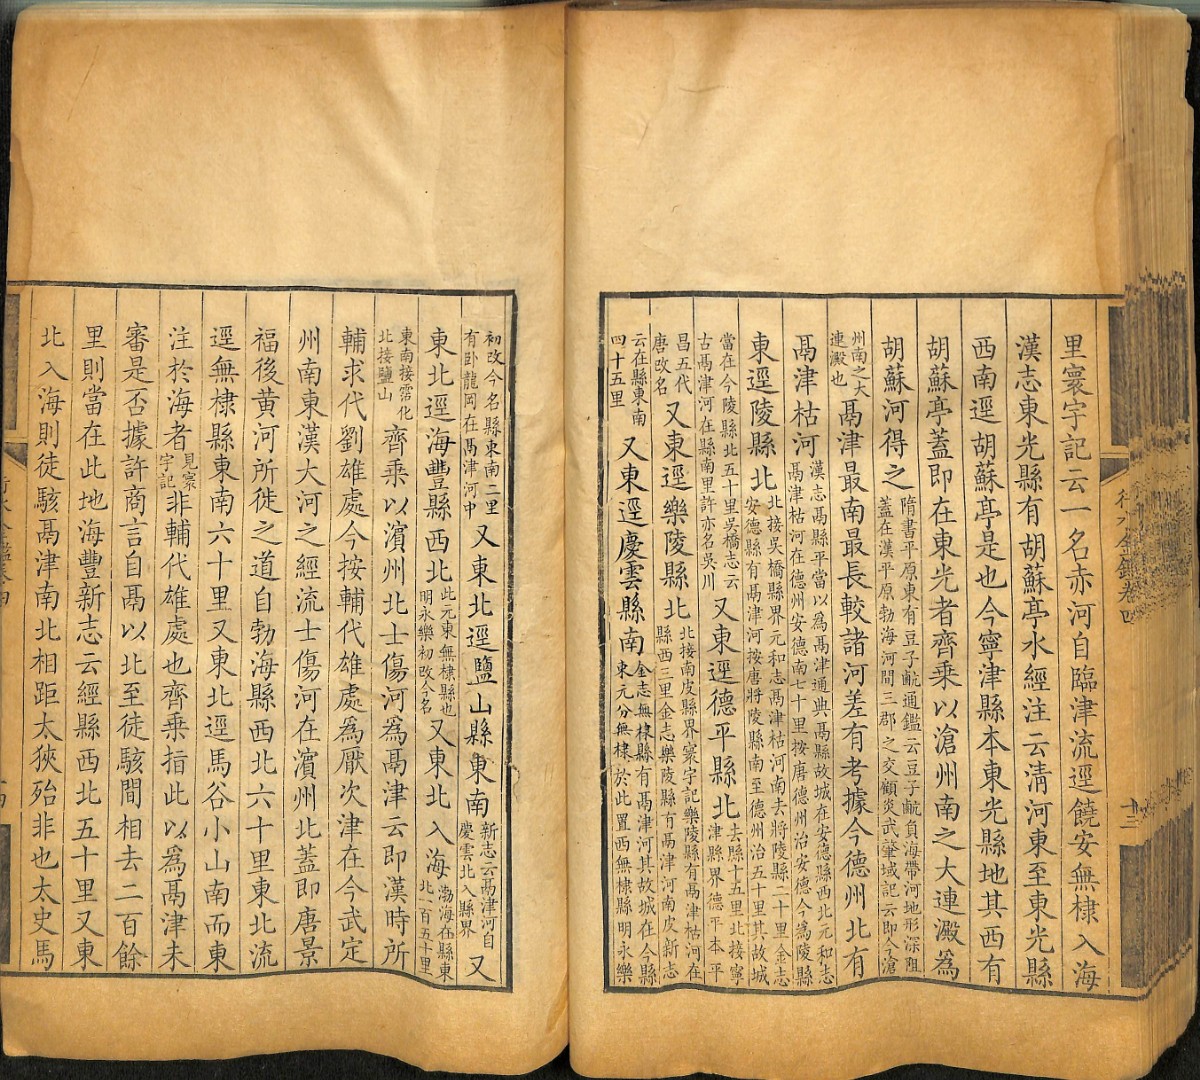 里寰宇記云一名赤河自臨津流逕饒安無棣入海
漢志東光縣有胡蘇亭水經注云清河東至東光縣
西南逕胡蘇亭是也今寧津縣本東光縣地其西有
胡蘇亭蓋即在東光者齊乘以滄州南之大連澱為
胡蘇河得之隋書平原東有豆子䴚通鑑云豆子䴚負海帶河地形深阻
蓋在漢平原勃海河間三郡之交顧炎武肇域記云即今滄
州南之大
連澱也鬲津最南最長較諸河差有考據今德州北有
鬲津枯河漢志鬲縣平當以為鬲津通典鬲縣故城在安德縣西北元和志
鬲津枯河在德州安德南七十里按唐德州治安德今為陵縣
東逕陵縣北北接吳橋縣界元和志鬲津枯河南去將陵縣二十里金志
安德縣有鬲津河按唐將陵縣南至德州治五十里其故城
當在今陵縣北五十里吳橋志云
古鬲津河在縣南里許亦名吳川又東逕德平縣北去縣十五里北接寧
津縣界德平本平
昌五代
唐改名又東逕樂陵縣北北接南皮縣界寰宇記樂陵縣有鬲津枯河在
縣西三里金志樂陵縣有鬲津河南皮新志
云在縣東南
四十五里又東逕慶雲縣南金志無棣縣有鬲津河其故城在今縣
東元分無棣於此置西無棣縣明永樂
行水金鑑卷四
十三
初改今名縣東南二里
有卧龍岡在鬲津河中又東北逕鹽山縣東南新志云鬲津河自
慶雲北入縣界又
東北逕海豐縣西北此元東無棣縣也
明永樂初改今名又東北入海渤海在縣東
北一百五十里
東南接霑化
北接鹽山齊乘以濱州北士傷河為鬲津云即漢時所
輔求代劉雄處今按輔代雄處為厭次津在今武定
州南東漢大河之經流士傷河在濱州北蓋即唐景
福後黃河所徙之道自勃海縣西北六十里東北流
逕無棣縣東南六十里又東北逕馬谷小山南而東
注於海者見寰
宇記非輔代雄處也齊乘指此以為鬲津未
審是否據許商言自鬲以北至徒駭間相去二百餘
里則當在此地海豐新志云經縣西北五十里又東
北入海則徒駭鬲津南北相距太狹殆非也太史馬